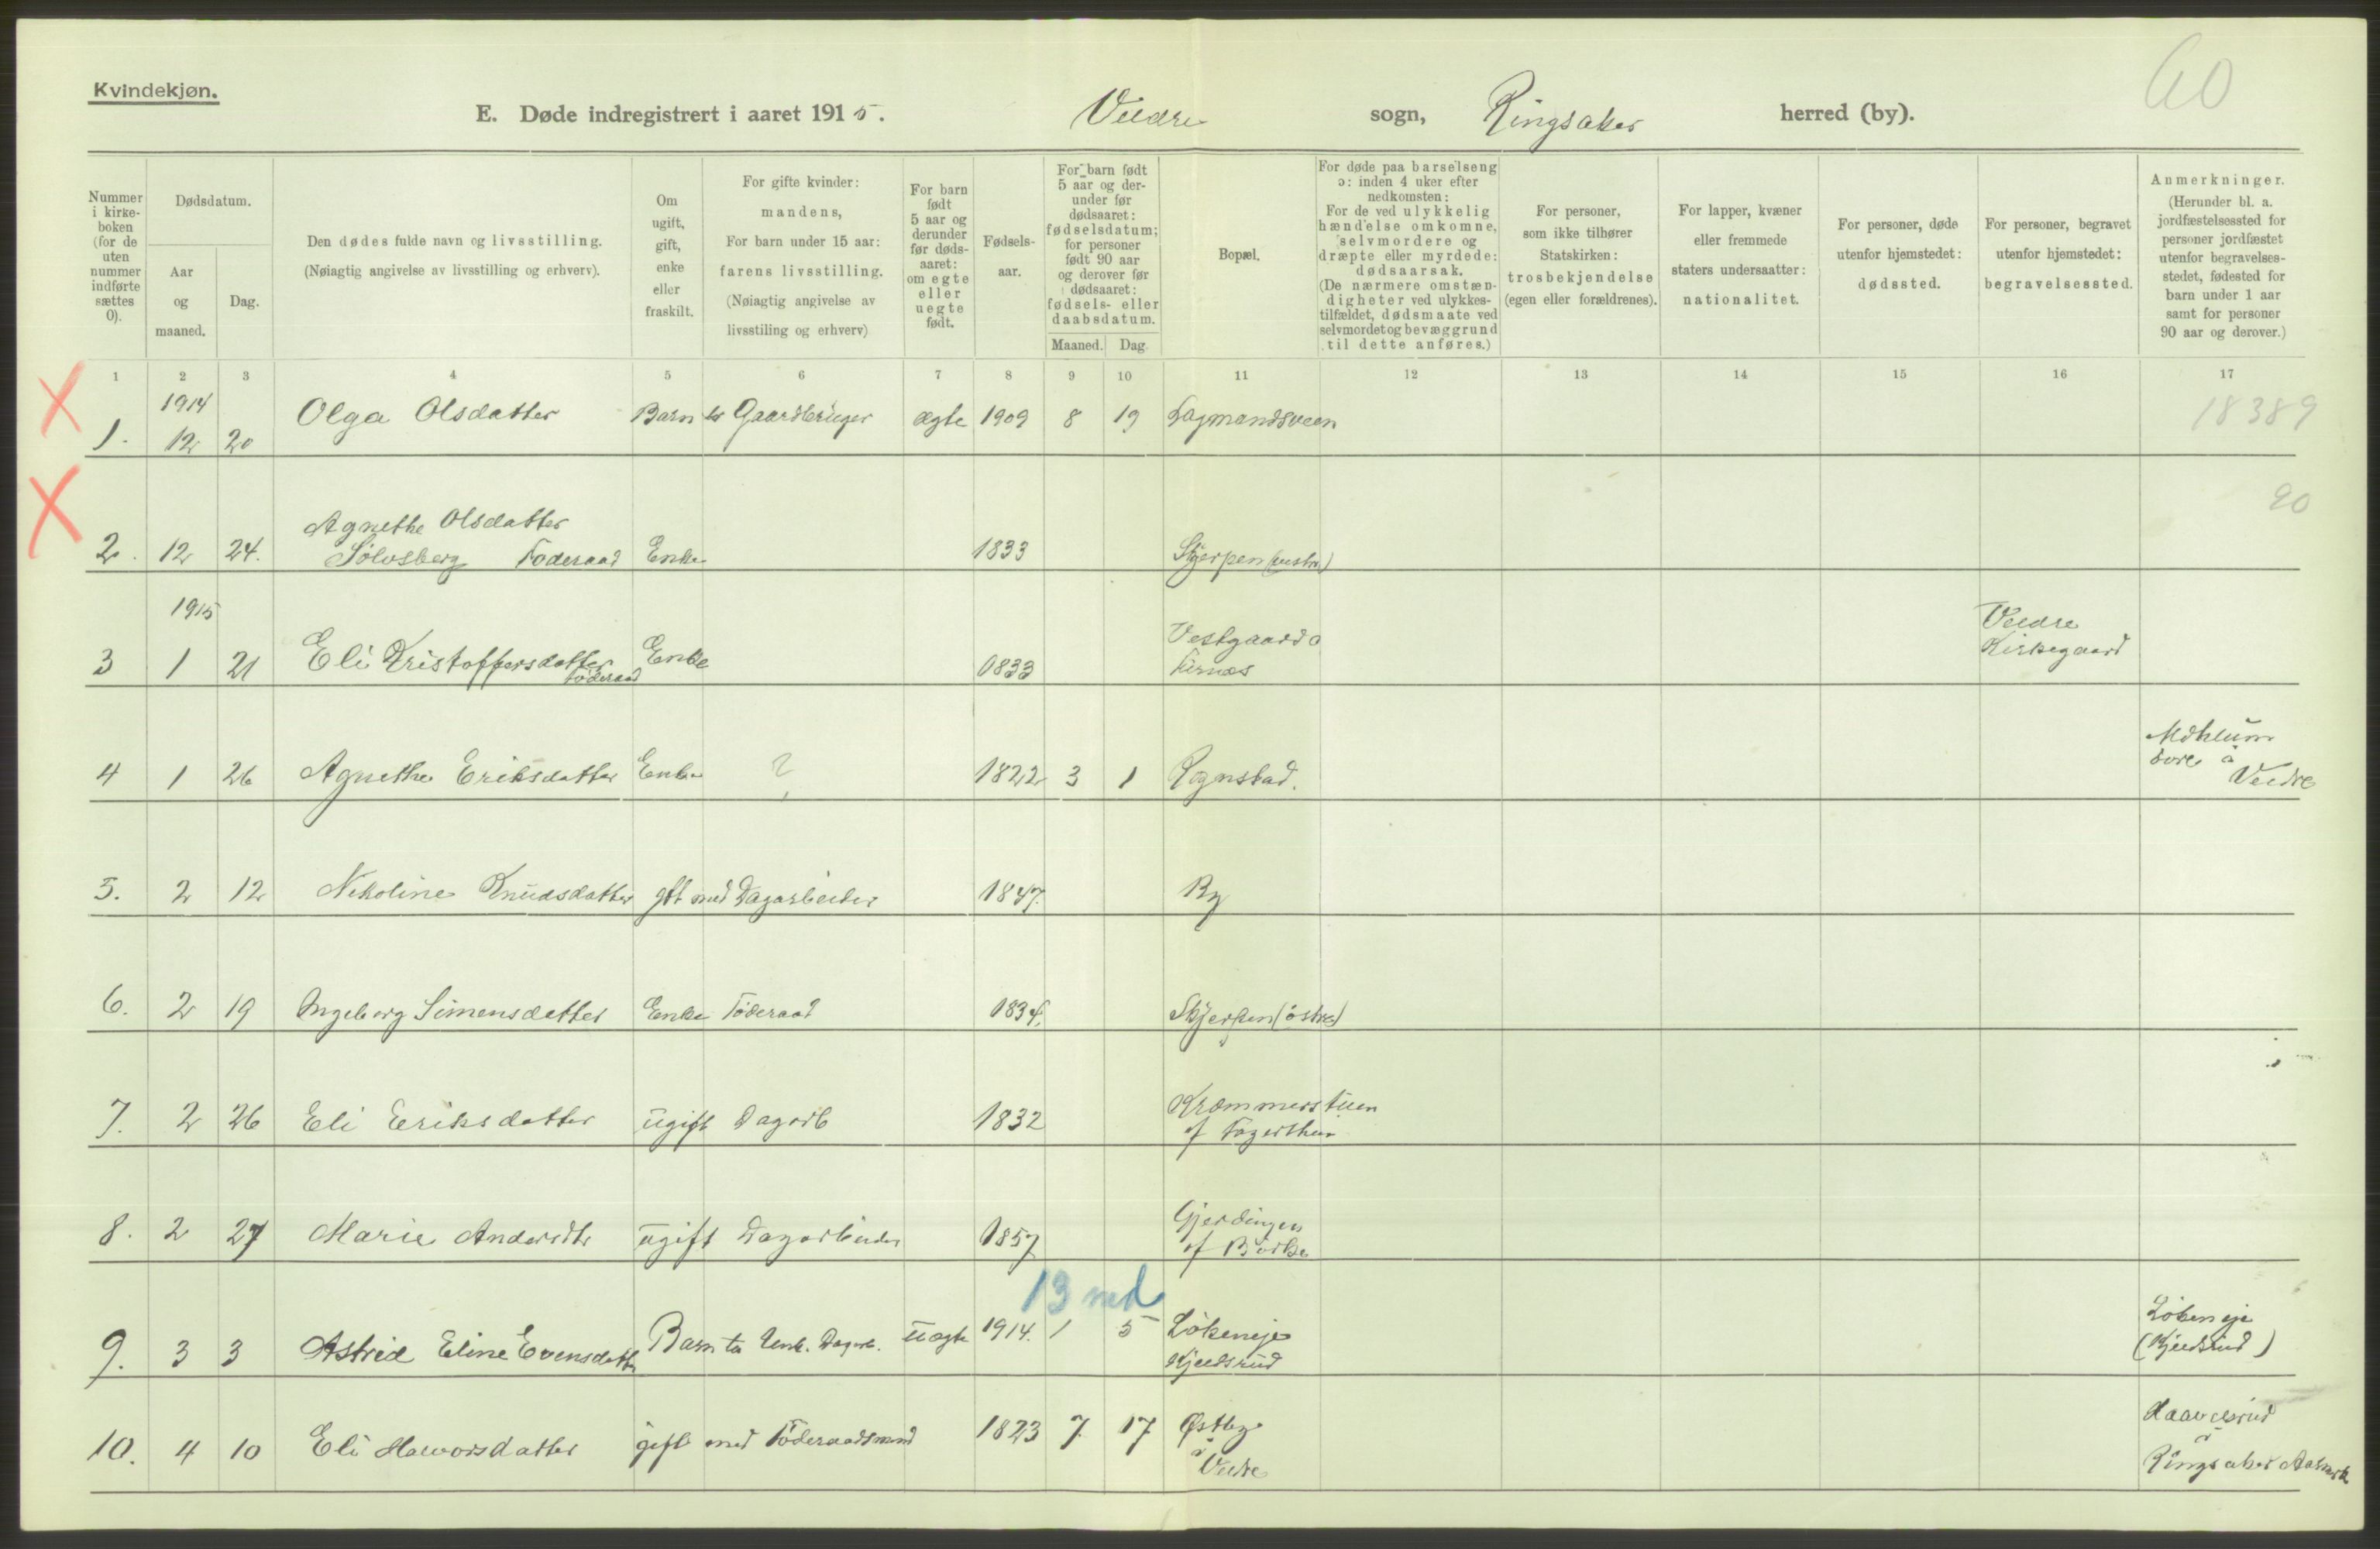 Kvindekjøn.
60
E. Døde indregistrert i aaret 1915. Veldre sogn, Ringsaker herred (by).
Nummer i kirke- boken (for de uten nummer indførte sættes 0).
Dødsdatum.
Aar og maaned.
Dag.
Den dødes fulde navn og livsstilling.
(Nøiagtig angivelse av livsstilling og erhverv).
Om ugift, gift, enke eller fraskilt.
For gifte kvinder: mandens,
For barn under 15 aar: farens livsstilling.
(Nøiagtig angivelse av livsstiling og erhverv)
For barn født 5 aar og derunder før døds- aaret: om egte eller uegte født.
Fødsels- aar.
For barn født 5 aar og der- under før dødsaaret: fødselsdatum; for personer født 90 aar og derover før dødsaaret: fødsels- eller daabsdatum.
Maaned. Dag.
Bopæl.
For døde paa barselseng ɔ: inden 4 uker efter nedkomsten:
For de ved ulykkelig hændelse omkomne, selvmordere og dræpte eller myrdede: dødsaarsak.
(De nærmere omstæn- digheter ved ulykkes- tilfældet, dødsmaate ved selvmordet og bevæggrund til dette anføres.)
For personer, som ikke tilhører Statskirken: trosbekjendelse (egen eller forældrenes).
For lapper, kvæner eller fremmede staters undersaatter: nationalitet.
For personer, døde utenfor hjemstedet: dødssted.
For personer, begravet utenfor hjemstedet: begravelsessted.
Anmerkninger.
(Herunder bl. a. jordfæstelsessted for personer jordfæstet utenfor begravelses- stedet, fødested for barn under 1 aar samt for personer 90 aar og derover.)
1 2 3 4 5 6 7 8 9 10 11 12 13 14 15 16 17
1914
1. 12 20 Olga Olsdatter Barn Gaardbruger ægte 1909 8 19 Lagmandsveen 18389
Agnethe Olsdatter 90
2. 12 24. Sølvsberg Føderaad Enke 1833 Skjerpen (vestre)
1915
3 1 21 Eli Kristoffersdatter Føderaad Enke 1833 Vestgaard Veldre Kirkegaard
4 1 26 Agnethe Eriksdatter Enke ? 1822 3 1 Rognstad. Veldre
5. 2 12 Nikoline Knudsdatter gft med Dagarbeider 1847. By
6. 2 19 Ingeborg Simensdatter Enke Føderaad 1834. Skjerpen (østre)
7. 2 26 Eli Eriksdatter ugift Dagarb 1832 Krammerstuen
8. 2 27 Marie Andersdtr ugift Dagarbeider 1857 Gjerdingen
13 md
9. 3 3 Astrid Eline Evensdatter Barn Dagarb. uægte 1914. 1 5 Løkeneje Kjeldsrud Løkeneje (Kjeldsrud)
10. 4 10 Eli Haavorsdatter gift med Føderaadsmand 1823 7. 17 Østby i Veldre Ringsaker